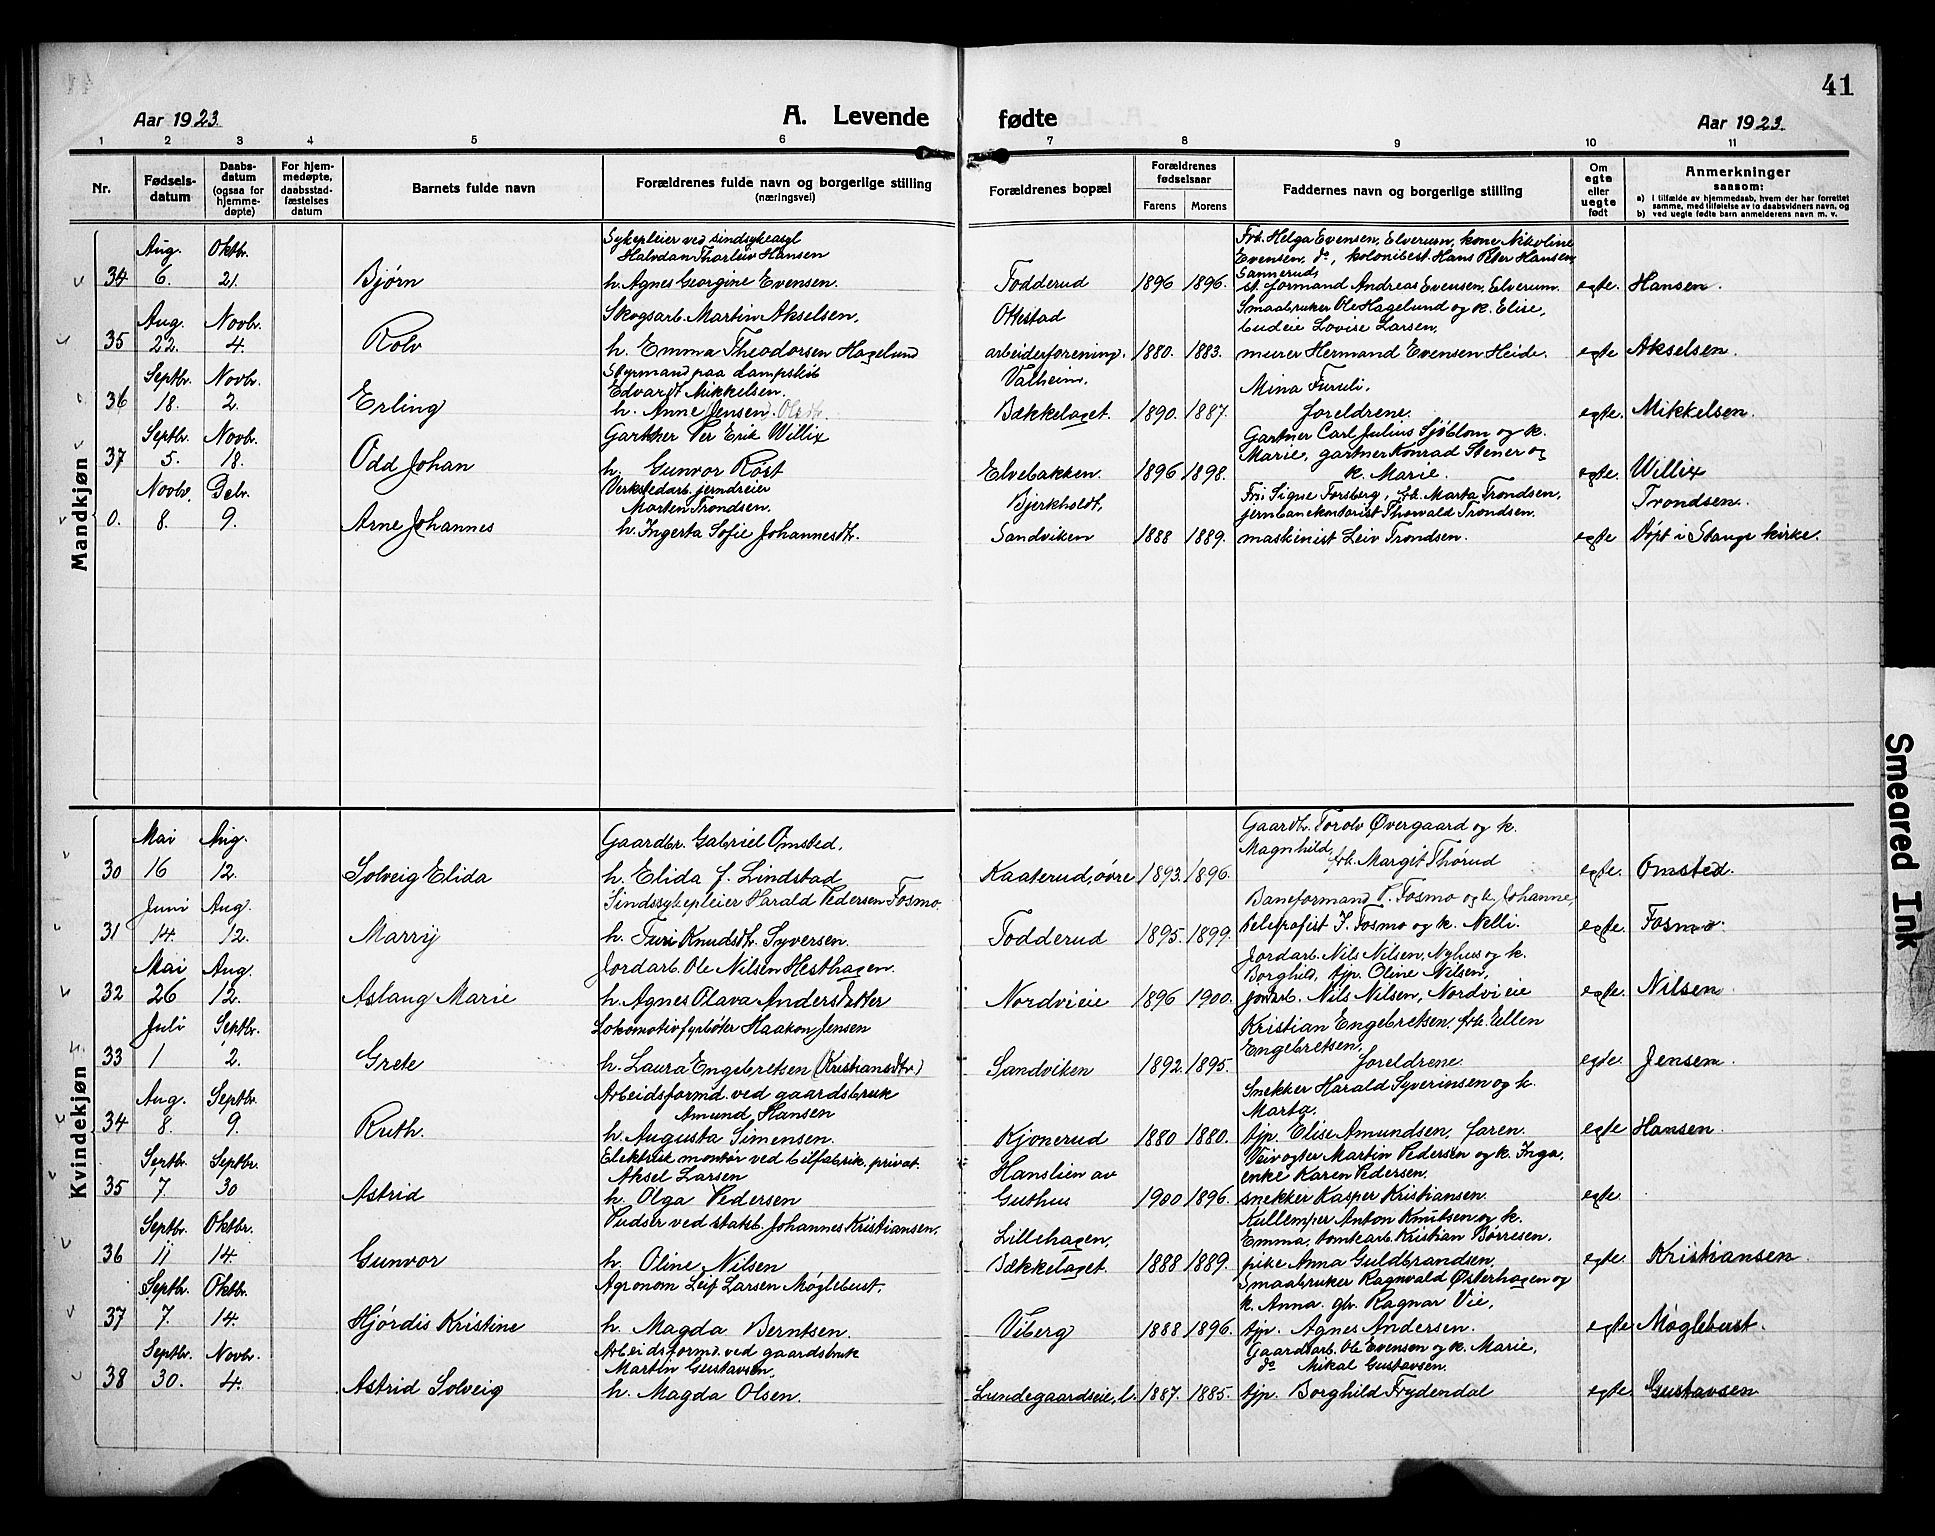 41
Aar 1923.
A. Levende fødte
Aar 1923.
1 2 3 4 5 6 7 8 9 10 11
Nr.
Fødsels-
datum
Daabs-
datum
(ogsaa for
hjemme-
døpte)
For hjem-
medøpte,
daabsstad-
fæstelses
datum
Barnets fulde navn
Forældrenes fulde navn og borgerlige stilling
(næringsvei)
Forældrenes bopæl
Forældrenes
fødselsaar
Farens Morens
Faddernes navn og borgerlige stilling
Om
egte
eller
uegte
født
Anmerkninger
saasom:
a) i tilfælde av hjemmedaab, hvem der har forrettet
samme, med tilføielse av to daabsvidners navn, og
b) ved uegte fødte barn anmelderens navn m. v.
Mandkjøn
Aug. Oktbr. Sykepleier ved sindsykeasyl Frk. Helga Evensen, Elverum, kone Nikoline
Halvdan Thorleiv Hansen Evensen, do, kolonibest. Hans Peter Hansen,
Sannerud,
34 6. 21. Bjørn h. Agnes Georgine Evensen. Todderud 1896 1896. st. formand Andreas Evensen, Elverum. egte. Hansen.
Aug. Novbr. Skogsarb. Martin Akselsen, Ottestad Smaabruker Ole Hagelund og k. Elise,
budeie Lovise Larsen,
35 22. 4. Rolv h. Emma Theodorsen Hagelund arbeiderforening. 1880. 1883. murer Hermand Evensen Heide. egte Akselsen.
Septbr. Novbr. Styrmand paa dampskib Valheim, Mina Furuli,
Edvardt Mikkelsen.
36 18. 2. Erling h. Anne Jensen. Bækkelaget. 1890. 1887. foreldrene. egte. Mikkelsen.
Septbr. Novbr. Gartner Per Erik Willix Gartner Carl Julius Sjøblom og k.
Marie, gartner Konrad Stener og
37 5. 18. Odd Johan h. Gunvor Røst Elvebakken. 1896 1898. k. Marie. egte. Willix
Novbr. Debr. Verkstedarb. jerndreier Bjerkholdt, Frk. Signe Forsberg, frk. Marta Trondsen, Trondsen.
Morten Trondsen. jernbanekontorist Thorvald Trondsen.
0. 8. 9. Arne Johannes h. Ingerta Sofie Johannesdtr. Sandviken 1888 1889. maskinist Leiv Trondsen. egte Døpt i Stange kirke.
Kvindekjøn
Mai Aug. Gaardbr. Gabriel Omsted. Gaardbr. Torolv Øvergaard og k.
Magnhild,
30 16 12. Solveig Elida h. Elida f. Lindstad Kaaterud, øvre 1893. 1896. frk. Margit Thorud egte. Omsted.
Juni Aug. Sindssykepleier Harald Pedersen Fosmo Baneformand P. Fosmo og k. Johanne,
31 14. 12. Marrij h. Turi Knudsdtr. Syversen. Todderud 1895. 1899. telegrafist J. Fosmo og k. Nelli. egte. Fosmo.
Mai Aug. Jordarb. Ole Nilsen Hesthagen. Jordarb. Nils Nilsen, Nyhus og k.
Borghild, tjp. Oline Nilsen,
32 26 12. Aslaug Marie h. Agnes Olava Andersdatter Nordvieie 1896 1900. jordarb. Nils Nilsen, Nordvieie egte. Nilsen.
Juli Septbr. Lokomotivfyrbøter Haakon Jensen Kristian Engebretsen, frk. Ellen
Engebretsen,
33 1 2. Grete h. Laura Engebretsen (Kristiansdtr) Sandviken 1892. 1895. foreldrene. egte. Jensen.
Aug. Septbr. Arbeidsformd. ved gaardsbruk Snekker Harald Syverinsen og k.
Amund Hansen Marta.
34 8. 9. Ruth. h. Augusta Simensen. Kjonerud 1880 1880. tjp. Elise Amundsen, faren. egte Hansen.
Septbr. Septbr. Elektrisk montør ved bilfabrik, privat. Hanslien av Veivogter Martin Pedersen og k. Inga,
Aksel Larsen enke Karen Pedersen.
35 7. 30 Astrid h. Olga Pedersen Guthus 1900 1896. snekker Kasper Kristiansen. egte.
Septbr. Oktbr. Pudser ved statsb. Johannes Kristiansen. Lillehagen, Kullemper Anton Knutsen og k.
Emma, tomtearb. Kristian Børresen.
36 11 14. Gunvor h. Oline Nilsen Bækkelaget. 1888 1889. pike Anna Guldbrandsen. egte. Kristiansen.
Septbr. Oktbr. Agronom Leif Larsen Møglebust. Smaabruker Ragnvald Østerhagen og
k. Anna. gbr. Ragnar Vie,
37 7. 14. Hjørdis Kristine h. Magda Berntsen. Viberg 1888 1896. tjp. Agnes Andersen. egte Møglebust.
Septbr. Novbr. Arbeidsformd. ved gaardsbruk Gaardsarb. Ole Evensen og k. Marie,
Martin Gustavsen. do Mikal Gustavsen.
38 30. 4. Astrid Solveig h. Magda Olsen. Lundegaardseie, l. 1887. 1885. tjp. Borghild Frydendal egte. Gustavsen
Smeared Ink